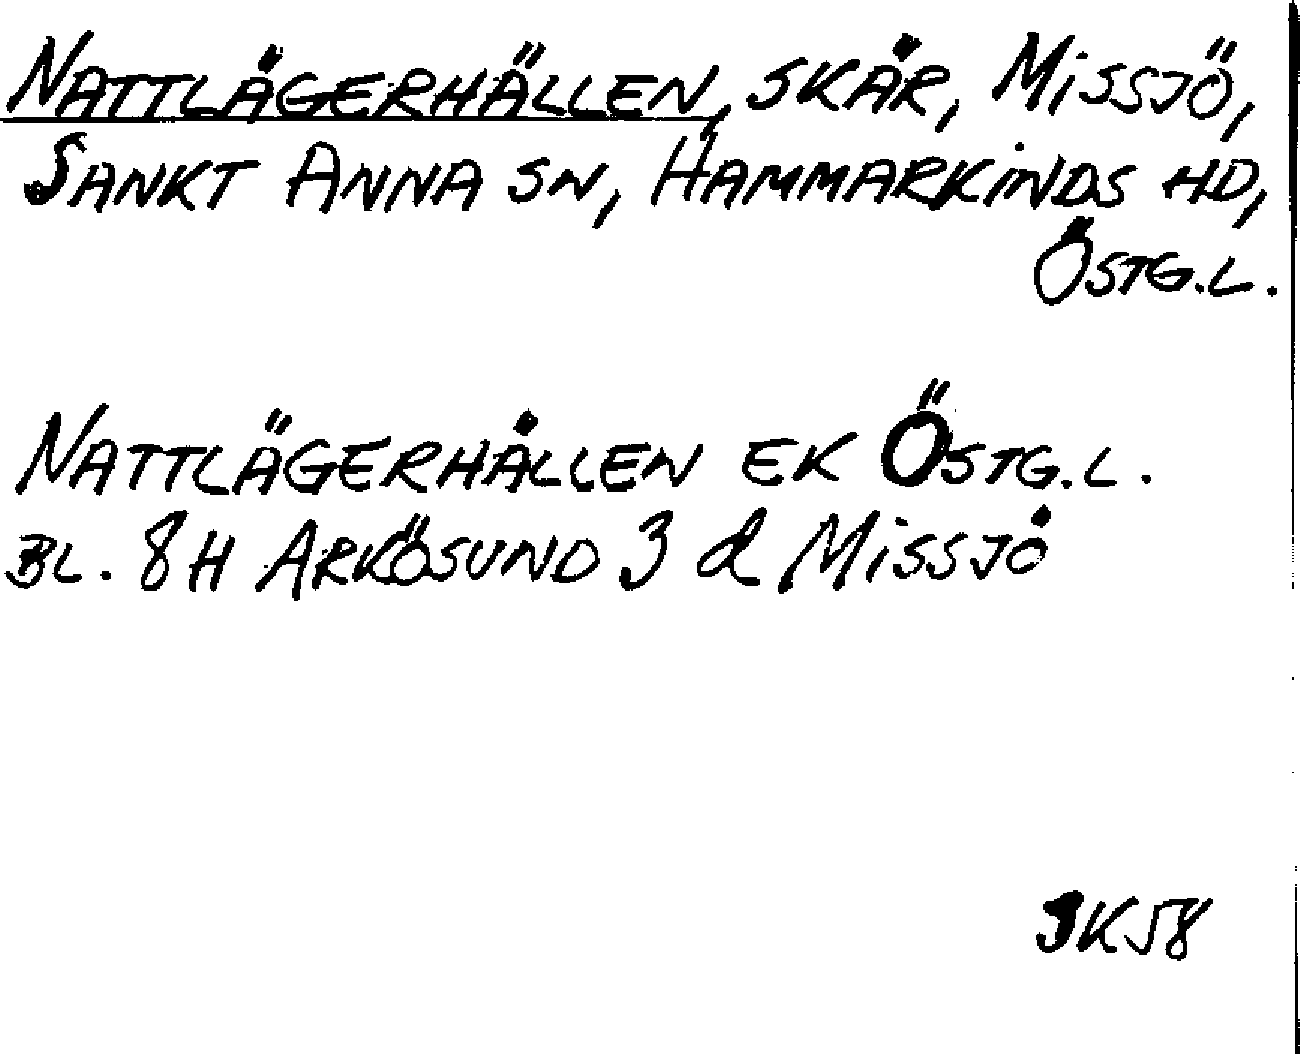 NATTLÄGERHÄLLEN, SKÄR, MISSJÖ,
SANKT ANNA SN, HAMMARKINDS HD,
ÖSTG.L.
NATTLÄGERHÄLLEN EK ÖSTG.L.
BL. 8H ARKÖSUND 3 d MISSJÖ
JK58